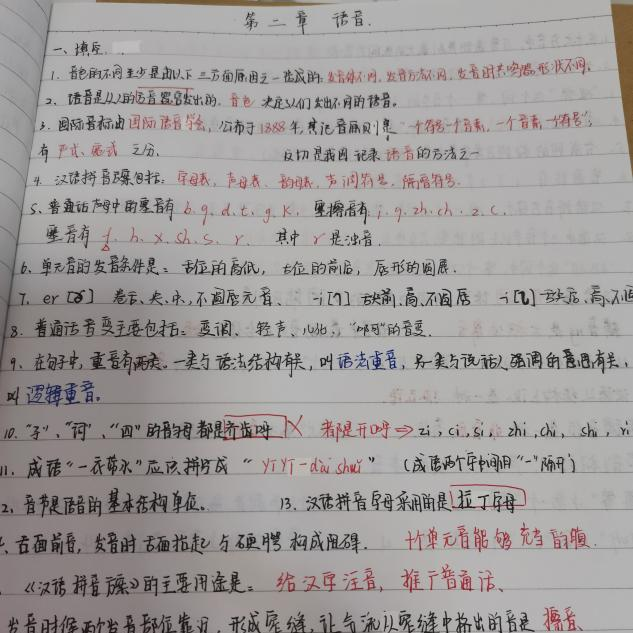 第二章 语音.
一、填空.
1. 音色的不同至少是由以下三方面原因之一造成的: 发音体不同, 发音方法不同, 发音时共鸣器形状不同.
2. 语音是人的发音器官发出的. 音色 决定人们发出不同的语音.
3. 国际音标由国际语音学会, 公布于1888年. 其记音原则是“一个符号一个音素, 一个音素一个符号”,
有 严式、宽式 之分. 反切是我国记录 语音的方法之一
4. 汉语拼音方案包括: 字母表、声母表、韵母表、声调符号、隔音符号.
5. 普通话声母中的塞音有 b. p. d. t. g. k. 塞擦音有 j. q. zh. ch. z. c.
擦音有 f. h. x. sh. s. r. 其中 r 是浊音.
6. 单元音的发音条件是: 舌位的高低, 舌位的前后, 唇形的圆展.
7. er [ɚ] 卷舌、央、中、不圆唇元音. -i [ɿ] 舌尖前、高、不圆唇 -i [ʅ] 舌尖后、高、不圆
8. 普通话音变主要包括: 变调、轻声、儿化、“啊”的音变.
9. 在句子中, 重音有两类. 一类与语法结构有关, 叫 语法重音, 另一类与说话人强调的意图有关,
叫 逻辑重音。
10. “子”、“词”、“四”的韵母都是齐齿呼 X 都是开口呼 ⇒ zi, ci, si, zhi, chi, shi, ri
11. 成语“一衣带水”应该拼写成 “ yī yī-dài shuǐ ” (成语两个字中间用“-”隔开)
2. 音节是语音的基本结构单位. 13. 汉语拼音字母采用的是 拉丁字母
舌面前音, 发音时舌面抬起与硬腭构成阻碍. 个单元音能够充当韵腹.
《汉语拼音方案》的主要用途是: 给汉字注音, 推广普通话.
发音时候两个发音部位靠近, 形成窄缝, 让气流从窄缝中挤出的音是 擦音.